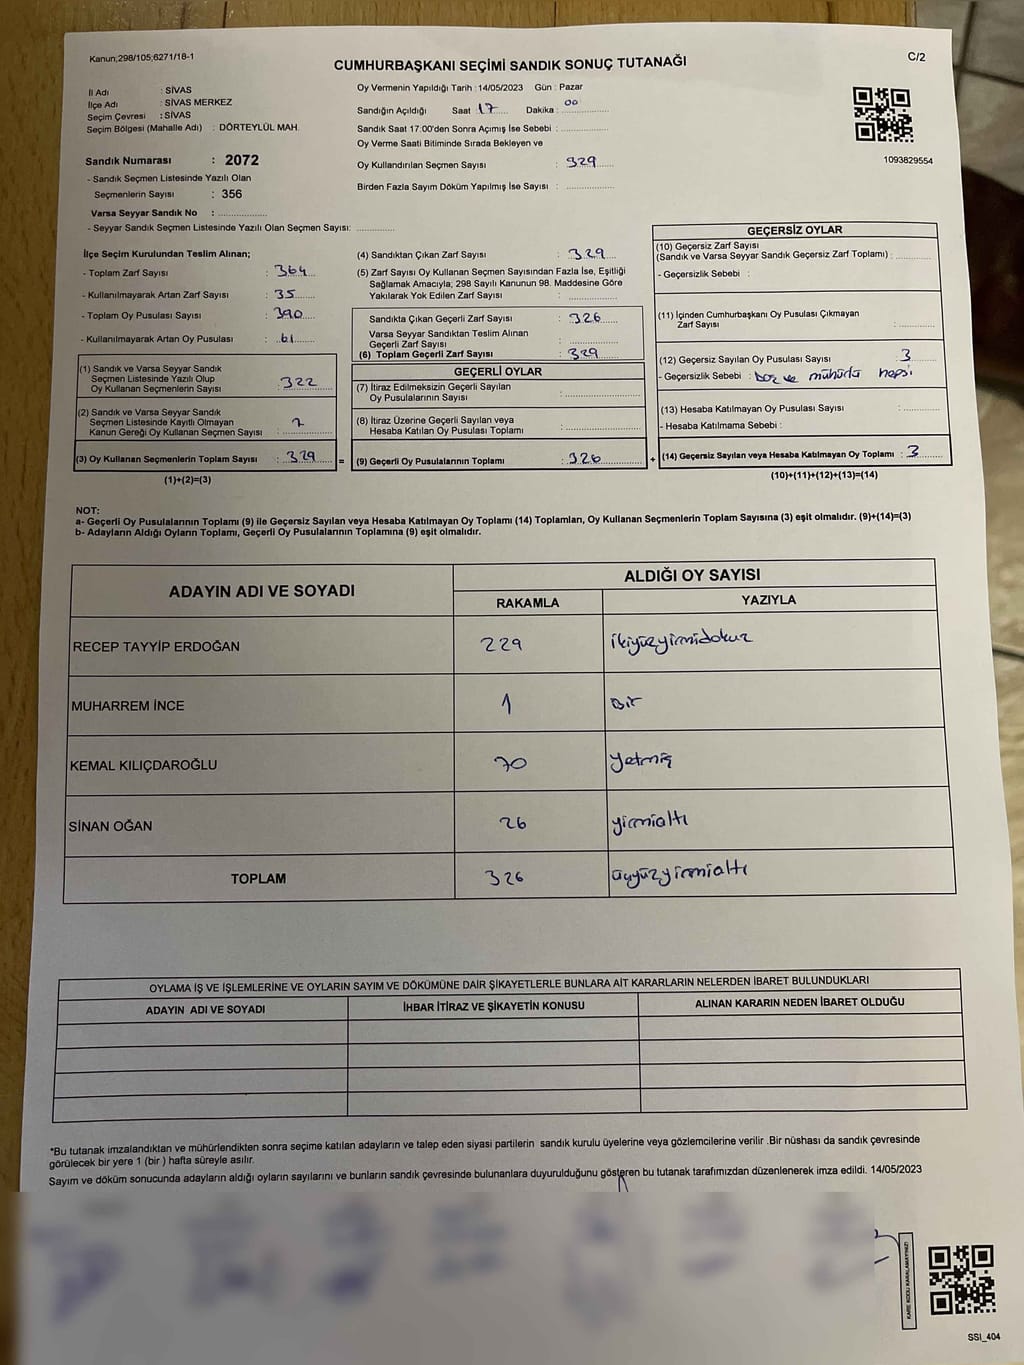 Kanun;298/105;6271/18-1
CUMHURBAŞKANI SEÇİMİ SANDIK SONUÇ TUTANAĞI
C/2
İl Adı : SİVAS
İlçe Adı : SİVAS MERKEZ
Seçim Çevresi : SİVAS
Seçim Bölgesi (Mahalle Adı) : DÖRTEYLÜL MAH.
Sandık Numarası : 2072
- Sandık Seçmen Listesinde Yazılı Olan
Seçmenlerin Sayısı : 356
Varsa Seyyar Sandık No :
- Seyyar Sandık Seçmen Listesinde Yazılı Olan Seçmen Sayısı:
Oy Vermenin Yapıldığı Tarih : 14/05/2023 Gün : Pazar
Sandığın Açıldığı Saat 17 Dakika : 00
Sandık Saat 17:00'den Sonra Açımış İse Sebebi :
Oy Verme Saati Bitiminde Sırada Bekleyen ve
Oy Kullandırılan Seçmen Sayısı : 329
Birden Fazla Sayım Döküm Yapılmış İse Sayısı :
1093829554
İlçe Seçim Kurulundan Teslim Alınan;
- Toplam Zarf Sayısı : 364
- Kullanılmayarak Artan Zarf Sayısı : 35
- Toplam Oy Pusulası Sayısı : 390
- Kullanılmayarak Artan Oy Pusulası : 61
(1) Sandık ve Varsa Seyyar Sandık
Seçmen Listesinde Yazılı Olup
Oy Kullanan Seçmenlerin Sayısı : 322
(2) Sandık ve Varsa Seyyar Sandık
Seçmen Listesinde Kayıtlı Olmayan
Kanun Gereği Oy Kullanan Seçmen Sayısı : 7
(3) Oy Kullanan Seçmenlerin Toplam Sayısı : 329 =
(1)+(2)=(3)
(4) Sandıktan Çıkan Zarf Sayısı : 329
(5) Zarf Sayısı Oy Kullanan Seçmen Sayısından Fazla İse, Eşitliği
Sağlamak Amacıyla; 298 Sayılı Kanunun 98. Maddesine Göre
Yakılarak Yok Edilen Zarf Sayısı :
Sandıkta Çıkan Geçerli Zarf Sayısı : 326
Varsa Seyyar Sandıktan Teslim Alınan
Geçerli Zarf Sayısı :
(6) Toplam Geçerli Zarf Sayısı : 329
GEÇERLİ OYLAR
(7) İtiraz Edilmeksizin Geçerli Sayılan
Oy Pusulalarının Sayısı :
(8) İtiraz Üzerine Geçerli Sayılan veya
Hesaba Katılan Oy Pusulası Toplamı :
(9) Geçerli Oy Pusulalarının Toplamı : 326 +
GEÇERSİZ OYLAR
(10) Geçersiz Zarf Sayısı
(Sandık ve Varsa Seyyar Sandık Geçersiz Zarf Toplamı) :
- Geçersizlik Sebebi :
(11) İçinden Cumhurbaşkanı Oy Pusulası Çıkmayan
Zarf Sayısı :
(12) Geçersiz Sayılan Oy Pusulası Sayısı : 3
- Geçersizlik Sebebi : boş ve mühürlü hepsi
(13) Hesaba Katılmayan Oy Pusulası Sayısı :
- Hesaba Katılmama Sebebi :
(14) Geçersiz Sayılan veya Hesaba Katılmayan Oy Toplamı : 3
(10)+(11)+(12)+(13)=(14)
NOT:
a- Geçerli Oy Pusulalarının Toplamı (9) ile Geçersiz Sayılan veya Hesaba Katılmayan Oy Toplamı (14) Toplamları, Oy Kullanan Seçmenlerin Toplam Sayısına (3) eşit olmalıdır. (9)+(14)=(3)
b- Adayların Aldığı Oyların Toplamı, Geçerli Oy Pusulalarının Toplamına (9) eşit olmalıdır.
ADAYIN ADI VE SOYADI ALDIĞI OY SAYISI
RAKAMLA YAZIYLA
RECEP TAYYİP ERDOĞAN 229 ikiyüzyirmidokuz
MUHARREM İNCE 1 Bir
KEMAL KILIÇDAROĞLU 70 Yetmiş
SİNAN OĞAN 26 yirmialtı
TOPLAM 326 üçyüzyirmialtı
OYLAMA İŞ VE İŞLEMLERİNE VE OYLARIN SAYIM VE DÖKÜMÜNE DAİR ŞİKAYETLERLE BUNLARA AİT KARARLARIN NELERDEN İBARET BULUNDUKLARI
ADAYIN ADI VE SOYADI İHBAR İTİRAZ VE ŞİKAYETİN KONUSU ALINAN KARARIN NEDEN İBARET OLDUĞU
*Bu tutanak imzalandıktan ve mühürlendikten sonra seçime katılan adayların ve talep eden siyasi partilerin sandık kurulu üyelerine veya gözlemcilerine verilir .Bir nüshası da sandık çevresinde
görülecek bir yere 1 (bir ) hafta süreyle asılır.
Sayım ve döküm sonucunda adayların aldığı oyların sayılarını ve bunların sandık çevresinde bulunanlara duyurulduğunu gösteren bu tutanak tarafımızdan düzenlenerek imza edildi. 14/05/2023
KARE KODU KARALAMAYINIZ!
SSI_404